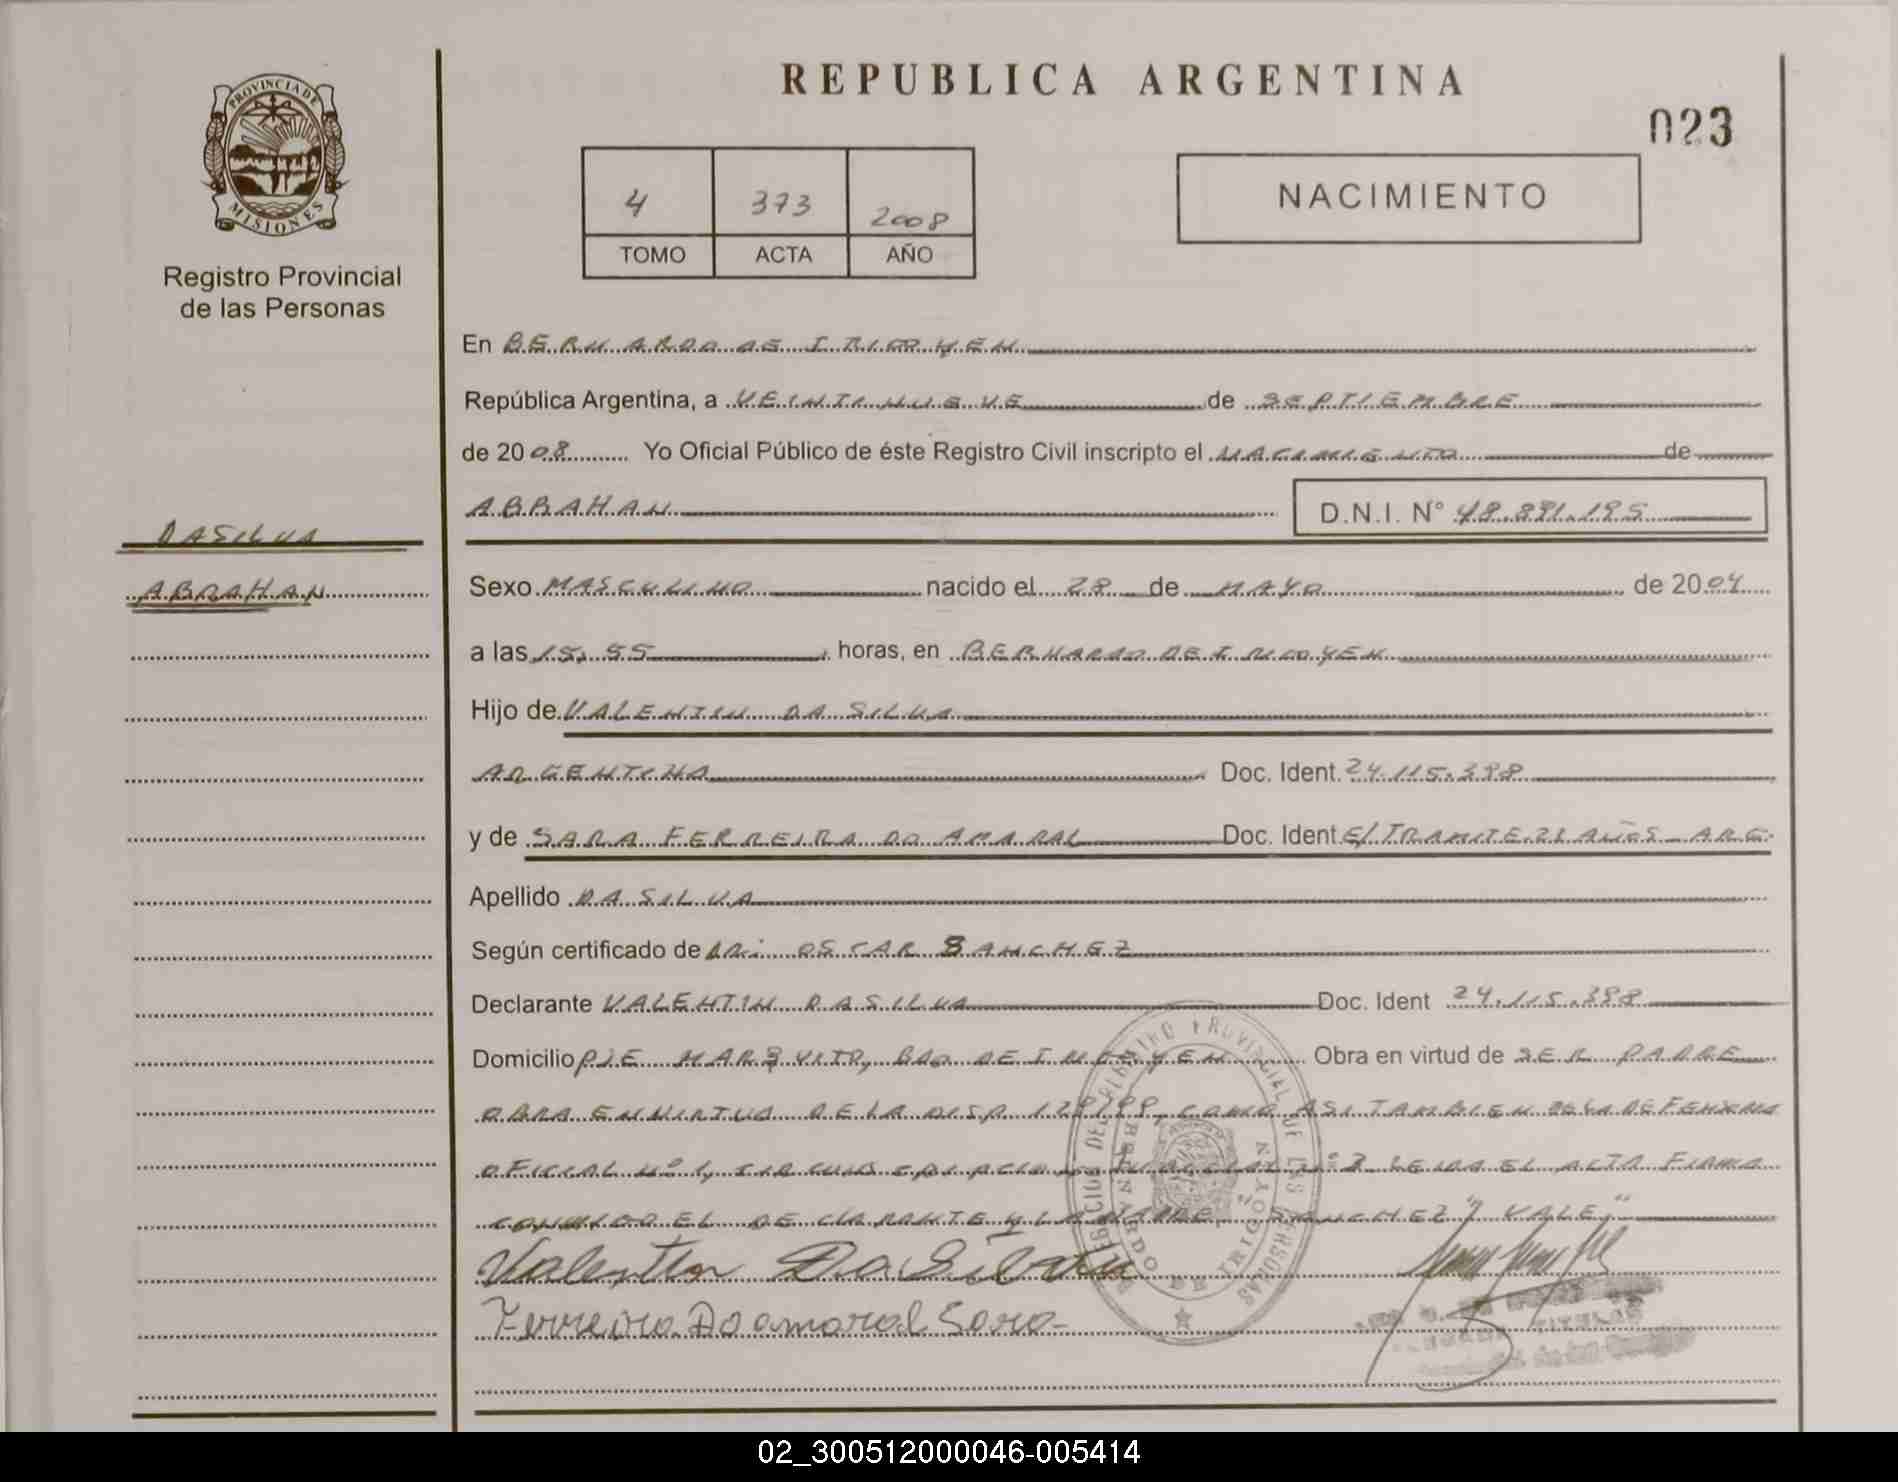 PROVINCIA DE
MISIONES
Registro Provincial
de las Personas
REPUBLICA ARGENTINA
023
4 373 2008
TOMO ACTA AÑO
NACIMIENTO
En BERNARDO DE IRIGOYEN
República Argentina, a VEINTINUEVE de SEPTIEMBRE
de 2008 Yo Oficial Público de éste Registro Civil inscripto el NACIMIENTO de
ABRAHAN D.N.I. N° 48.891.195
DA SILVA
ABRAHAN
Sexo MASCULINO nacido el 28 de MAYO de 2004
a las 15,55 horas, en BERNARDO DE IRIGOYEN
Hijo de VALENTIN DA SILVA
ARGENTINA Doc. Ident. 24.115.398
y de SARA FERREIRA DO AMARAL Doc. Ident E/TRAMITE.21 AÑOS - ARG.
Apellido DA SILVA
Según certificado de DR. OSCAR SANCHEZ
Declarante VALENTIN DA SILVA Doc. Ident 24.115.398
Domicilio PJE MARQUITO, BDO DE IRIGOYEN Obra en virtud de SER PADRE
OBRA EN VIRTUD DE LA DISP. COMO ASI TAMBIEN DE LA DEFENSORIA
OFICIAL N° 1, N° 3 LEIDA EL ACTA FIRMA
CONMIGO EL DECLARANTE Y LA MADRE. SANCHEZ" VALE"
Valentin Da Silva
Ferreira Do amaral Sara-
DE IRIGOYEN
TITULAR
02_300512000046-005414